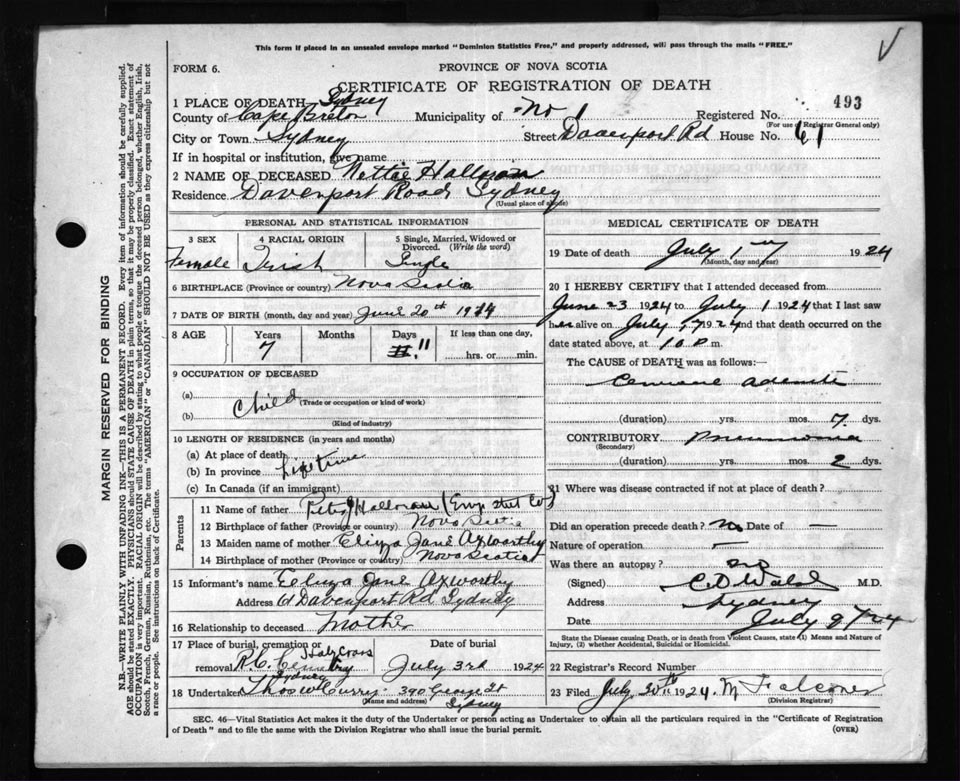 This form if placed in an unsealed envelope marked "Dominion Statistics Free," and properly addressed, will pass through the mails "FREE."
FORM 6.
PROVINCE OF NOVA SCOTIA
CERTIFICATE OF REGISTRATION OF DEATH
493
1 PLACE OF DEATH Sydney
County of Cape Breton Municipality of No 1 Registered No.
(For use of Registrar General only)
City or Town Sydney Street Davenport Rd House No. 61
If in hospital or institution, give name
2 NAME OF DECEASED Nettie Halloran
Residence Davenport Road Sydney
(Usual place of abode)
PERSONAL AND STATISTICAL INFORMATION
3 SEX Female
4 RACIAL ORIGIN Irish
5 Single, Married, Widowed or Divorced. (Write the word) Single
6 BIRTHPLACE (Province or country) Nova Scotia
7 DATE OF BIRTH (month, day and year) June 20th
8 AGE Years 7 Months Days 11 If less than one day,
hrs. or min.
9 OCCUPATION OF DECEASED
(a) Child
(Trade or occupation or kind of work)
(b)
(Kind of industry)
10 LENGTH OF RESIDENCE (in years and months)
(a) At place of death
(b) In province Life time
(c) In Canada (if an immigrant)
Parents
11 Name of father Peter Halloran (Emp Steel Co)
12 Birthplace of father (Province or country) Nova Scotia
13 Maiden name of mother Eliza Jane Axworthy
14 Birthplace of mother (Province or country) Nova Scotia
15 Informant's name Eliza Jane Axworthy
Address 61 Davenport Rd Sydney
16 Relationship to deceased Mother
17 Place of burial, cremation or removal Holy Cross R.C. Cemetery Sydney
Date of burial July 3rd 1924
18 Undertaker Thos W Curry. 390 George St Sydney
(Name and address)
MEDICAL CERTIFICATE OF DEATH
19 Date of death July 1 1924
(Month, day and year)
20 I HEREBY CERTIFY that I attended deceased from
June 23 1924 to July 1 1924 that I last saw
her alive on July 1924 and that death occurred on
date stated above, at 10 P m.
The CAUSE of DEATH was as follows:—
(duration) yrs. mos. 7 dys.
CONTRIBUTORY Pneumonia
(Secondary)
(duration) yrs. mos. 2 dys.
21 Where was disease contracted if not at place of death?
Did an operation precede death? no Date of —
Nature of operation —
Was there an autopsy? no
(Signed) C.D. M.D.
Address Sydney
Date July 24
State the Disease causing Death, or in death from Violent Causes, state (1) Means and Nature of
Injury, (2) whether Accidental, Suicidal or Homicidal.
22 Registrar's Record Number
23 Filed July 30th 1924. M Falconer
(Division Registrar)
SEC. 46—Vital Statistics Act makes it the duty of the Undertaker or person acting as Undertaker to obtain all the particulars required in the "Certificate of Registration
of Death" and to file the same with the Division Registrar who shall issue the burial permit.
(OVER)
MARGIN RESERVED FOR BINDING
N.B.—WRITE PLAINLY WITH UNFADING INK—THIS IS A PERMANENT RECORD. Every item of information should be carefully supplied.
AGE should be stated EXACTLY. PHYSICIANS should STATE CAUSE OF DEATH in plain terms, so that it may be properly classified. Exact statement of
OCCUPATION is very important. RACIAL ORIGIN will be described by stating to what people or tongue the deceased person belonged, whether English, Irish,
Scotch, French, German, Russian, Ruthenian, etc. The terms "AMERICAN" or "CANADIAN" SHOULD NOT BE USED as they express citizenship but not
a race or people. See instructions on back of Certificate.